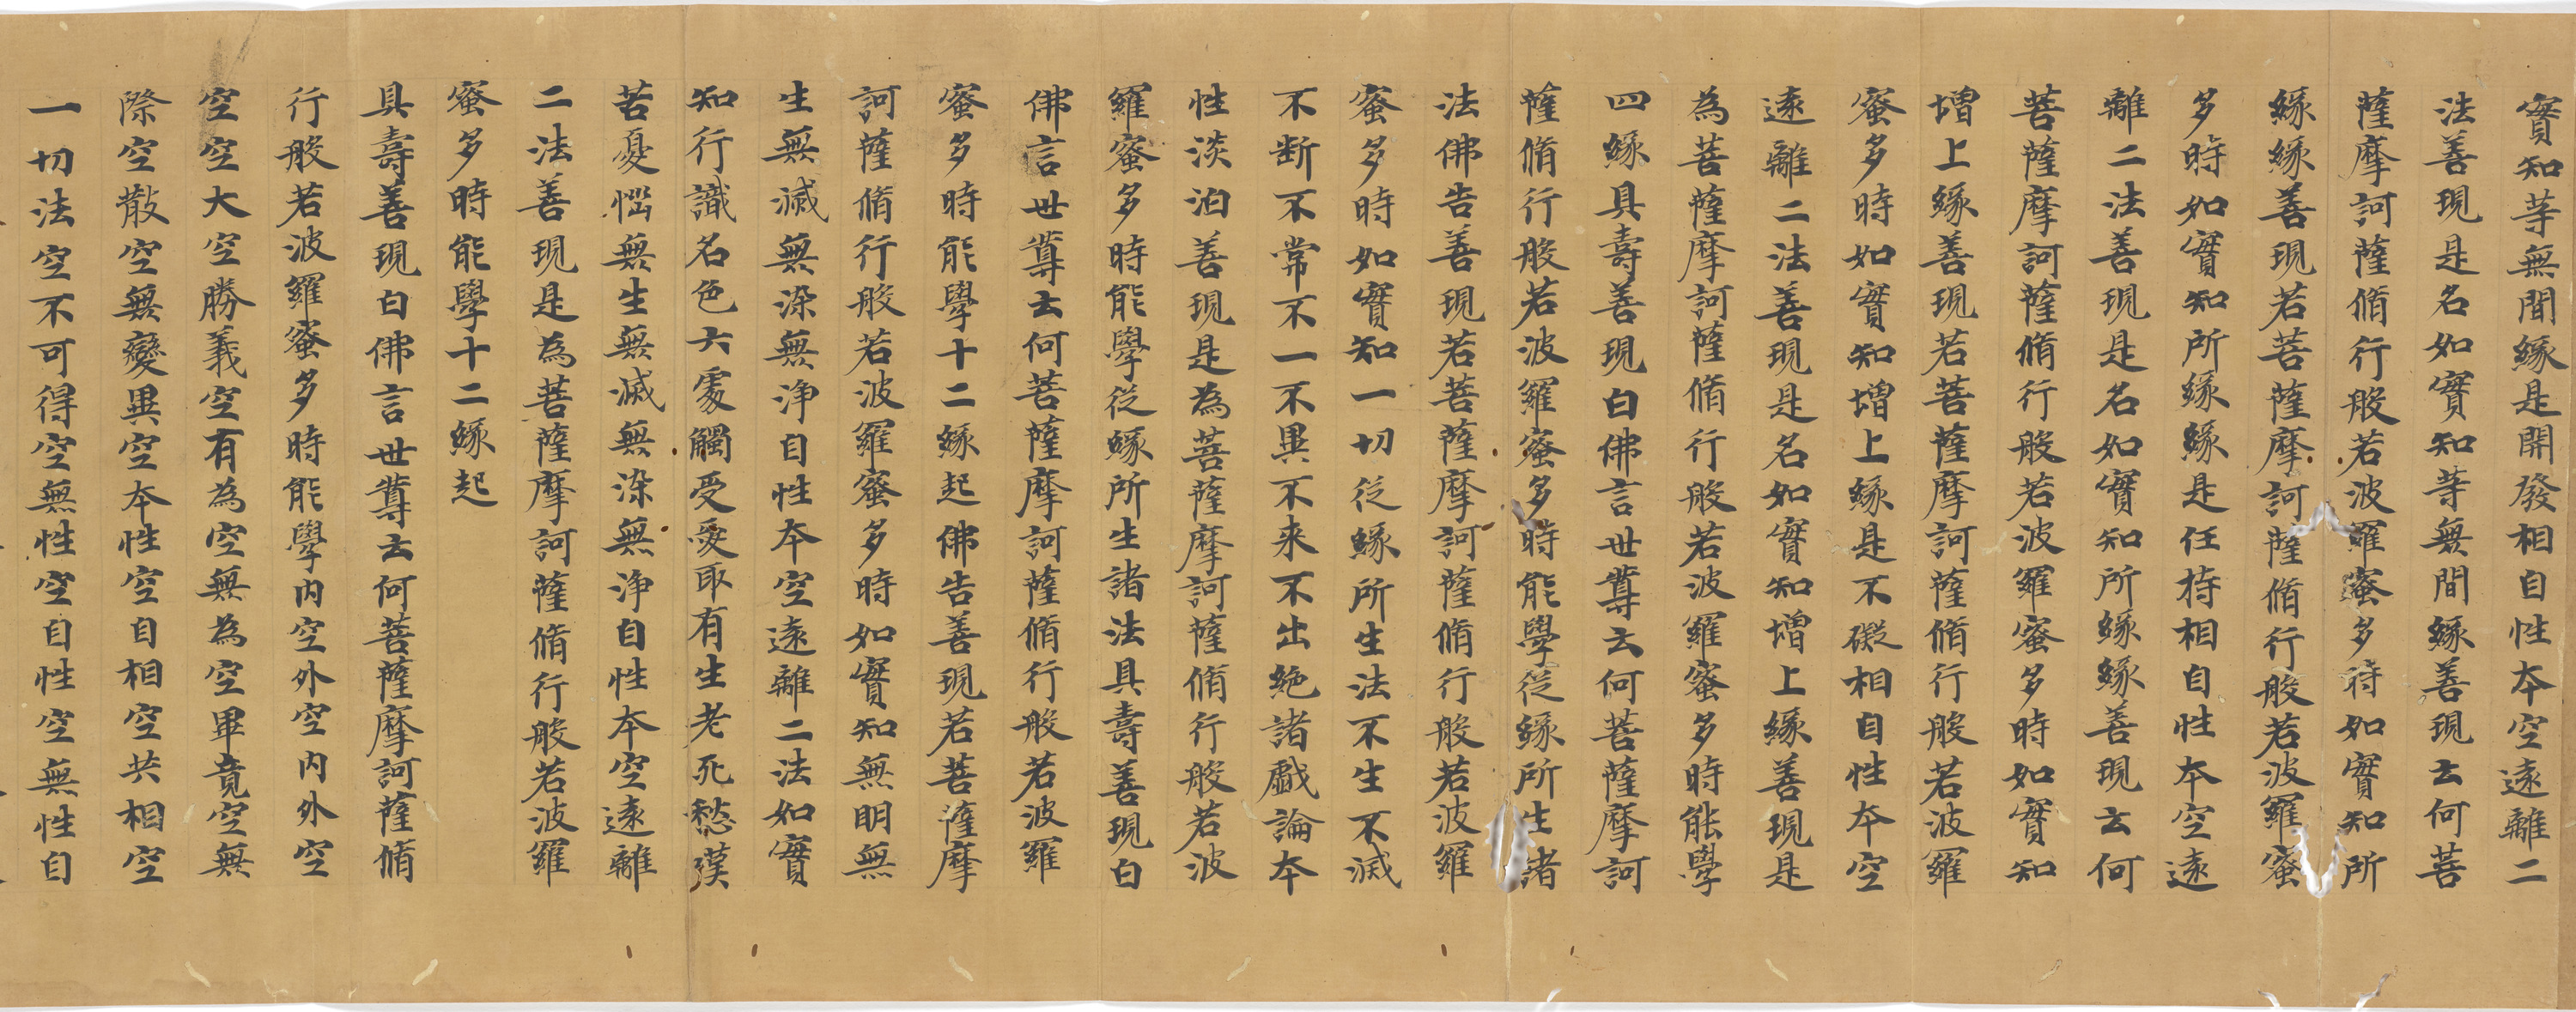 實知等無間緣是開發相自性本空遠離二
法善現是名如實知等無間緣善現云何菩
薩摩訶薩脩行般若波羅蜜多時如實知所
緣緣善現若菩薩摩訶薩脩行般若波羅蜜
多時如實知所緣緣是任持相自性本空遠
離二法善現是名如實知所緣緣善現云何
菩薩摩訶薩脩行般若波羅蜜多時如實知
增上緣善現若菩薩摩訶薩脩行般若波羅
蜜多時如實知增上緣是不礙相自性本空
遠離二法善現是名如實知增上緣善現是
為菩薩摩訶薩脩行般若波羅蜜多時能學
四緣具壽善現白佛言世尊云何菩薩摩訶
薩脩行般若波羅蜜多時能學從緣所生諸
法佛告善現若菩薩摩訶薩脩行般若波羅
蜜多時如實知一切從緣所生法不生不滅
不断不常不一不異不来不出絶諸戲論本
性淡泊善現是為菩薩摩訶薩脩行般若波
羅蜜多時能學從緣所生諸法具壽善現白
佛言世尊云何菩薩摩訶薩脩行般若波羅
蜜多時能學十二緣起佛告善現若菩薩摩
訶薩脩行般若波羅蜜多時如實知無明無
生無滅無染無淨自性本空遠離二法如實
知行識名色六處觸受愛取有生老死愁嘆
苦憂惱無生無滅無染無淨自性本空遠離
二法善現是為菩薩摩訶薩脩行般若波羅
蜜多時能學十二緣起
具壽善現白佛言世尊云何菩薩摩訶薩脩
行般若波羅蜜多時能學内空外空内外空
空空大空勝義空有為空無為空畢竟空無
際空散空無變異空本性空自相空共相空
一切法空不可得空無性空自性空無性自